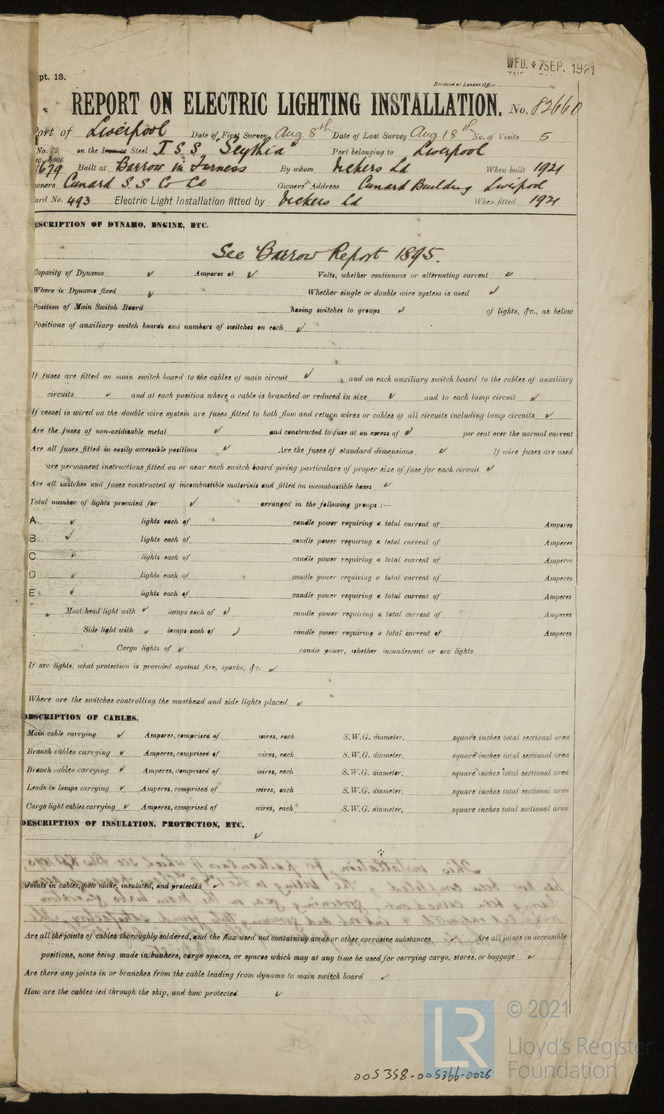 pt. 13.
WED. 7 SEP. 1921
Received at London Office
REPORT ON ELECTRIC LIGHTING INSTALLATION. No. 82660
Port of Liverpool Date of First Survey Aug 8th Date of Last Survey Aug 18th No. of Visits 5
No. in on the Iron or Steel T.S.S Scythia Port belonging to Liverpool
1679 Built at Barrow in Furness By whom Vickers Ld When built 1921
Owners Cunard S.S Co Ld Owners' Address Cunard Building Liverpool
ard No. 493 Electric Light Installation fitted by Vickers Ld When fitted 1921
DESCRIPTION OF DYNAMO, ENGINE, ETC.
See Barrow Report 1895.
Capacity of Dynamo ✓ Amperes at ✓ Volts, whether continuous or alternating current ✓
Where is Dynamo fixed ✓ Whether single or double wire system is used ✓
Position of Main Switch Board having switches to groups ✓ of lights, &c., as below
Positions of auxiliary switch boards and numbers of switches on each ✓
If fuses are fitted on main switch board to the cables of main circuit ✓ and on each auxiliary switch board to the cables of auxiliary
circuits ✓ and at each position where a cable is branched or reduced in size ✓ and to each lamp circuit ✓
If vessel is wired on the double wire system are fuses fitted to both flow and return wires or cables of all circuits including lamp circuits ✓
Are the fuses of non-oxidizable metal ✓ and constructed to fuse at an excess of ✓ per cent over the normal current
Are all fuses fitted in easily accessible positions ✓ Are the fuses of standard dimensions ✓ If wire fuses are used
are permanent instructions fitted on or near each switch board giving particulars of proper size of fuse for each circuit ✓
Are all switches and fuses constructed of incombustible materials and fitted on incombustible bases ✓
Total number of lights provided for ✓ arranged in the following groups :—
A ✓ lights each of candle power requiring a total current of Amperes
B ✓ lights each of candle power requiring a total current of Amperes
C ✓ lights each of candle power requiring a total current of Amperes
D ✓ lights each of candle power requiring a total current of Amperes
E ✓ lights each of candle power requiring a total current of Amperes
Mast head light with ✓ lamps each of ✓ candle power requiring a total current of Amperes
Side light with ✓ lamps each of ✓ candle power requiring a total current of Amperes
Cargo lights of ✓ candle power, whether incandescent or arc lights
If arc lights, what protection is provided against fire, sparks, &c. ✓
Where are the switches controlling the masthead and side lights placed ✓
DESCRIPTION OF CABLES.
Main cable carrying ✓ Amperes, comprised of wires, each S.W.G. diameter, square inches total sectional area
Branch cables carrying ✓ Amperes, comprised of wires, each S.W.G. diameter, square inches total sectional area
Branch cables carrying ✓ Amperes, comprised of wires, each S.W.G. diameter, square inches total sectional area
Leads to lamps carrying ✓ Amperes, comprised of wires, each S.W.G. diameter, square inches total sectional area
Cargo light cables carrying ✓ Amperes, comprised of wires, each S.W.G. diameter, square inches total sectional area
DESCRIPTION OF INSULATION, PROTECTION, ETC.
✓
Joints in cables, how made, insulated, and protected ✓
Are all the joints of cables thoroughly soldered, and the flux used not containing acids or other corrosive substances ✓ Are all joints in accessible
positions, none being made in bunkers, cargo spaces, or spaces which may at any time be used for carrying cargo, stores, or baggage ✓
Are there any joints in or branches from the cable leading from dynamo to main switch board ✓
How are the cables led through the ship, and how protected ✓
LR
© 2021
Lloyd's Register
Foundation
005358-005366-0026